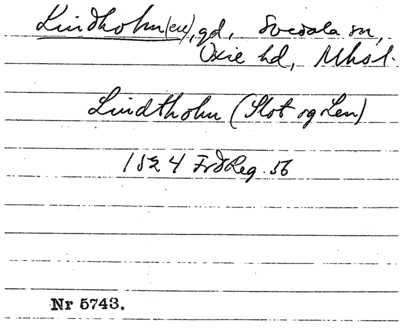 Lindholm(en), gd, Svedala sn,
Oxie hd, Mhsl.
Lindtholm (Slot og Len)
1524 FrdReg. 56
Nr 5743.